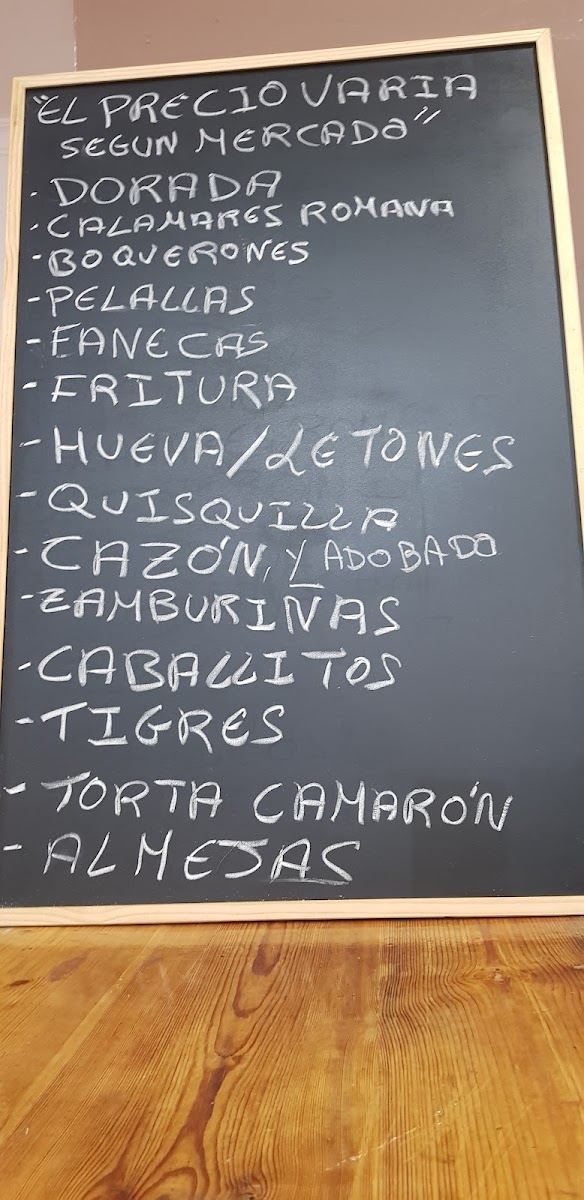 "EL PRECIO VARIA
SEGUN MERCADO"
- DORADA
- CALAMARES ROMANA
- BOQUERONES
- PELALLAS
- FANECAS
- FRITURA
- HUEVA/LETONES
- QUISQUILLA
- CAZÓN, Y ADOBADO
- ZAMBURIÑAS
- CABALLITOS
- TIGRES
- TORTA CAMARÓN
- ALMEJAS